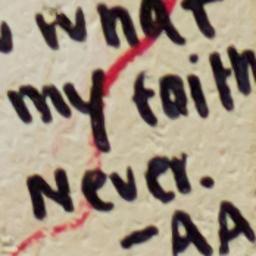 what
my faith
Never.
-AA